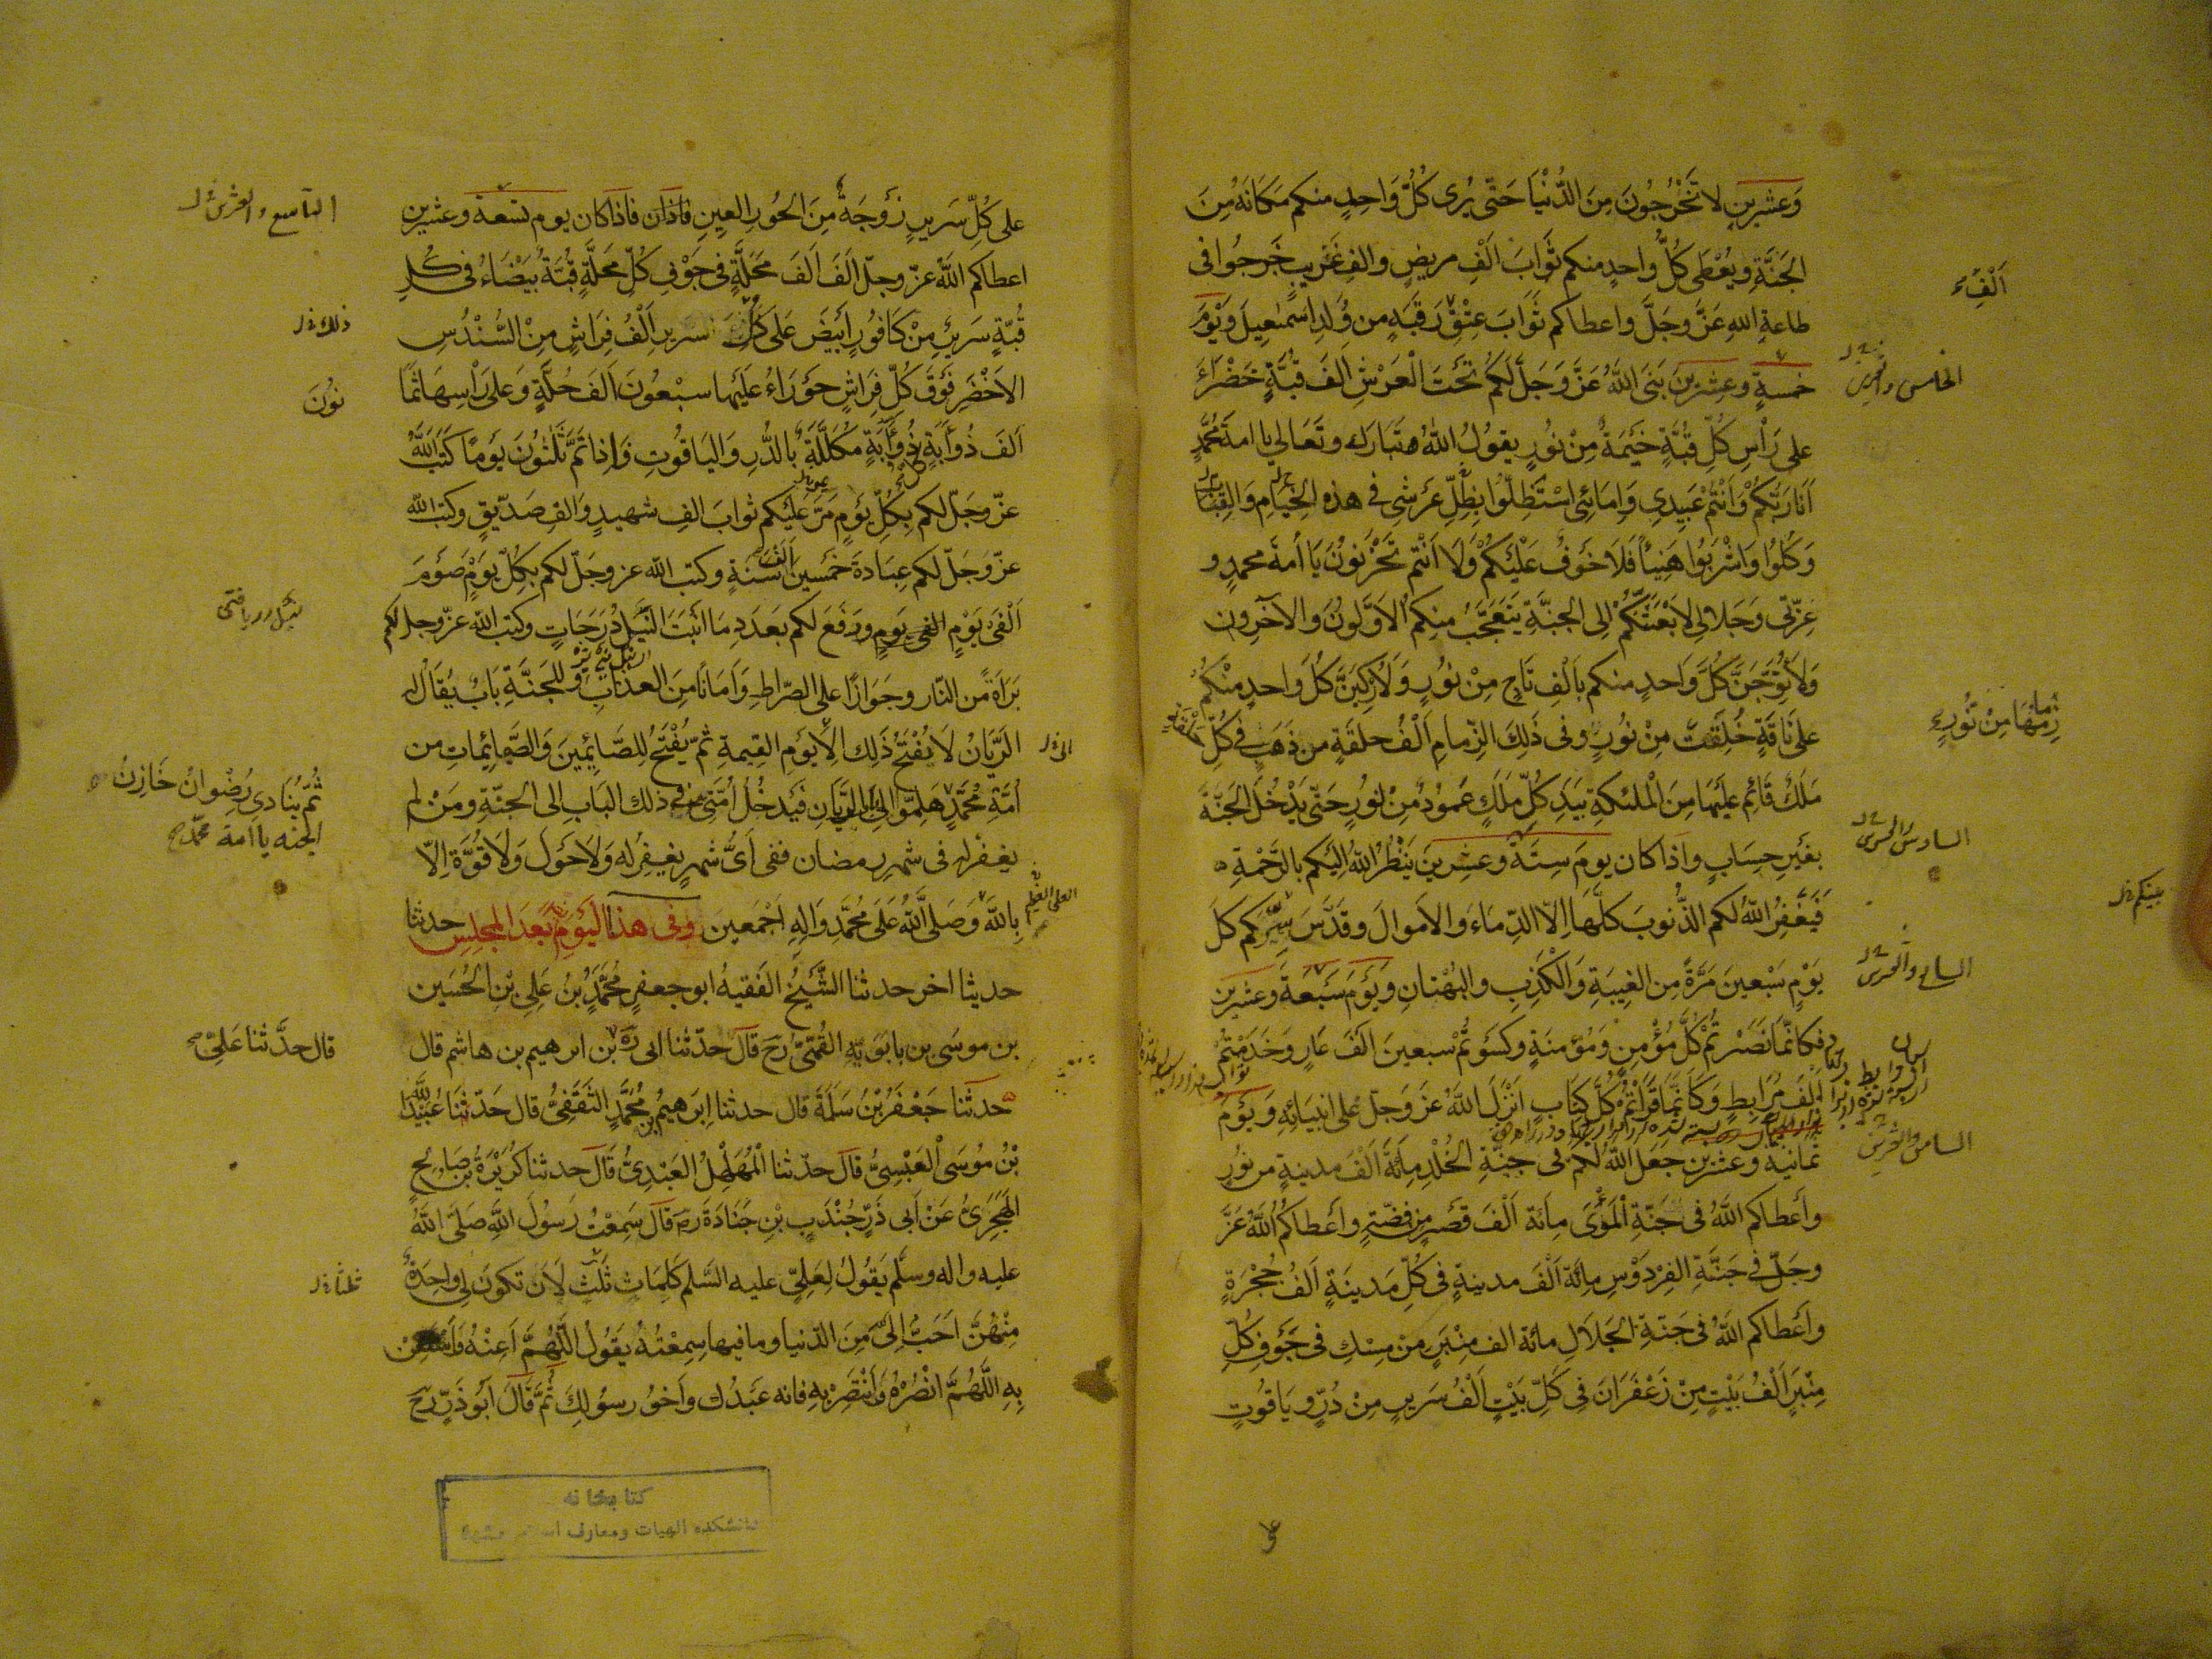 وَعشرينٍ لا تَخْرُجُونَ مِنَ الدُّنْيَا حَتّى يُرى كُلَّ وَاحِدٍ منكم مَكَانَهُ مِنَ
الجَنَّةِ ويُعْطى كُلَّ واحدٍ منكم ثَوابَ اَلْفِ مريضٍ والفِ غَرِيبٍ خَرجُوا فى
اَلْفَىْ
طاعةِ اللهِ عَزَّ وجَلَّ واعطاكم ثَوَابَ عِتْقِ رَقَبَهٍ من وُلدِ اسمٰعِيلَ وَيَوْمَ
خمسةٍ وعِشرينَ بَنَى اللّهُ عَزَّ وَجَلَّ لَكُم تَحْتَ الْعَرْشِ الفَ قُبَّةٍ خَضْراءَ
على رَاْسِ كُلِّ قُبَّةٍ خَيْمَةٌ مِنْ نُورٍ يقولُ اللهُ تَبَارك وتَعَالى يا امةَ مُحَمَّدٍ
اَنَا رَبُّكُمْ وَاَنْتُمْ عَبِيدِي وَاِمَائِى اسْتَظِلُّوا بِظِلِّ عَرْشِى فى هذه الخِيَامِ وَالقِبَابِ
وَكُلُوا وَاشْرَبُوا هَنِيئاً فَلَا خَوفٌ عَلَيْكُمْ وَلَا اَنْتُم تَحْزَنُونَ يَا اُمةَ محمدٍ و
عِزَّتِى وَجَلالِى لَابْعَثَنَّكُمْ اِلى الجنّةِ يَتَعَجَّبُ منكم الاَوَّلونَ والاخِرون
وَلَاُتَوِّجَنَّ كُلَّ وَاحدٍ منكم بِاَلْفِ تَاجٍ مِنْ نُورٍ وَلَاُرْكِبَنَّ كُلَّ وَاحدٍ مِنْكُم
على نَاقَةٍ خُلِقَتْ مِنْ نُورٍ وفى ذَلِكَ الزِّمامِ اَلْفُ حَلَقَةٍ من ذَهَبٍ فى كُلِّ
زِمَامُهَا مِنْ نُورٍ
مَلَكٌ قَائِم عليها مِنَ الْملئكةِ بيَدِ كُلِّ مَلَكٍ عَمُودٌ مِنْ نُورٍ حَتّى يَدْخُلَ الجَنَّةَ
بغَيرِ حِسَابٍ واذا كان يومَ سِتَّةٍ وعِشرينَ يَنْظُرُ اللهُ اِلَيكم بالرَّحْمةِ
فَيَغْفِرُ اللّهُ لكم الذُّنوبَ كلَّها اِلّا الدِّماءَ والاموالَ وقَدَّسَ كُلَّ
يَوْمٍ سَبْعينَ مَرَّةً مِن الغِيبَةِ وَالْكَذِبِ والبُهْتانِ ويَوْمَ سَبْعَةَ وعشرين
فكانّما نَصَرْتُمْ كُلَّ مُؤْمِنٍ وَمُؤْمنَةٍ وكسَوتُمْ سبعينَ اَلْفَ عَارٍ وخَدَمْتُم
اَلْفَ مُرَابِطٍ وَكَاَنَّمَا قَرَاْتُمْ كُلَّ كِتَابٍ اَنْزَلَ اللّهُ عَزّ وجَلّ على انبيَائِهِ وَيَومَ
ثمانية وعشرين جَعَل اللّهُ لكم فى جَنَّةِ الخُلْدِ مِائَةَ اَلْفَ مدينةٍ من نُورٍ
وأعطاكم اللّهُ فى جَنّةِ الْمَأوَى مِائَة اَلْفَ قَصْرٍ مِن فِضّةٍ وأعطاكُم اللّهُ عَزَّ
وجَلّ فى جَنَّةِ الفِرْدَوْسِ مِائَة اَلْفَ مدينةٍ فى كُلِّ مَدينَةٍ اَلفُ حُجْرَةٍ
وأعْطاكم اللّهُ فى جَنّةِ الجَلَالِ مائة الف مِنْبَرٍ مِنْ مِسْكٍ فى جَوْفِ كُلِّ
مِنْبَرٍ اَلْفُ بَيْتٍ مِنْ زَعْفَرَانَ فى كُلِّ بَيْتٍ اَلْفُ سَريرٍ مِنْ دُرٍّ ويَاقُوتٍ
على كُلِّ سَريرٍ زَوْجَةٌ مِنَ الحُورِ العِينِ فاذا كان يوم تسعة وعشرين
اعطاكم اللّهُ عزّ وجلّ اَلفَ اَلفَ مَحَلَّةٍ فى جَوْفِ كُلِّ محَلّةٍ قُبَّةٌ بَيْضَاءُ فى كُلِّ
قُبّةٍ سَريرٌ مِنْ كَافُورٍ اَبيَضَ عَلى كُلِّ سريرٍ اَلْفُ فِرَاشٍ مِنَ السُّنْدُسِ
الاَخْضَرِ فَوْقَ كُلِّ فِرَاشٍ حَوْرَاءُ عَلَيْها سبْعُونَ اَلفَ حُلَّةٍ وَعلى رَاْسِهَا ثَمَا
نُونَ
اَلفَ ذُؤَابَةٍ مُكَلَّلَةٍ بالدُّرِّ وَاليَاقُوتِ وَاِذا تَمَّ ثَلٰثُونَ يَومًا كَتَبَ اللّهُ
عزّ وجَلّ لكم بِكُلِّ يَومٍ مَرَّ عَلَيْكُم ثوابَ الفِ شهيدٍ وَالفِ صِدّيقٍ وكتبَ اللّه
عزّ وَجَلّ لكم عِبَادةَ خَمْسينَ اَلْفَ سَنةٍ وكتب اللّه عز وجَلّ لكم بكلِّ يَوْمٍ صَوْمَ
اَلْفَىْ يَوْمٍ وَرَفَعَ لكم بعَدَدِ مَا اَنْبَتَ النِّيلُ دَرَجَاتٍ وكتبَ اللّه عزّ وجلّ لكم
بَرَاةً مِّن النّار وجَوَازًا على الصّراطِ وَاَمَانًا مِنَ العذابِ وللجَنَّةِ بابٌ يُقَالُ له
الرَّيَّانُ لا يُفْتَحُ ذَلِك الى يَومِ القِيمةِ ثمّ يُفْتَحُ لِلصّائِمِينَ وَالصَّائِمَاتِ من
اُمَّةِ مُحَمَّدٍ هَلِمُّوا اِلَى الرَّيَّانِ فَيَدخُلُ اُمَّتِى فى ذلك البَابِ الى الجنّةِ ومَنْ لم
ثُمّ يُنَادِى رِضْوَانُ خَازِنُ
الجنه يا امة محمّد
يغفر له فى شهرِ رمضان ففى اَىِّ شهرٍ يغفِرُ له وَلَا حَوْلَ وَلَا قُوَّةَ اِلّا
بِاللّه العلى العظيم وَصَلى اللّهُ عَلَى مُحَمَّدٍ وَالِهِ اَجْمَعين وفى هذا اليَوْمِ بَعْدَ المجلِسِ حدثنا
حديثا اخر حدثنا الشَّيْخُ الفَقيهُ ابو جعفرٍ مُحَمَّدُ بْنُ عَلىِ بْنِ الحُسَين
بن موسَى بن بابَوَيْهِ القُمِّىُّ رَح قَالَ حدّثنا ابى رَه بن ابرهيم بن هاشم قال
قال حدَّثنا عَلِىّ
حدثَنا جَعْفَرُ بْنُ سَلَمَةَ قال حدثنا اِبرٰهيمُ بْنُ مُحَمَّدٍ الثَّقَفِىُّ قال حَدّثَنا عُبَيْدُ اللّه
بْنُ مُوسَى الْعَبْسِىُّ قالَ حدّثنا الْمُهَلْهِلُ العَبْدِىُّ قَالَ حدثنا كُرَيْزَةُ بْنُ صَالِحٍ
الهَجَرِىُّ عَنْ اَبى ذَرٍّ جُنْدَبِ بْنِ جَنَادَةَ رض قَالَ سَمِعْتُ رَسُولَ اللّهِ صَلّى اللّهُ
عليه واله وسلّم يَقُولُ لِعَلِىٍّ عليه السّلم كَلِمَاتٍ ثَلٰثٍ لَاَن تكونَ لى واحِدَةٌ
مِنْهُنَّ اَحَبُّ اِلَىَّ مِنَ الدّنيا وما فيها سِمِعْتُهُ يَقُولُ اللّهُمَّ اَعِنْهُ وَاسْتَعِنْ
بِهِ اللّهُمَّ انْصُرْهُ وَانْتَصِرْ بِهِ فانه عَبْدُك وأخُو رسُولِكَ ثُمَّ قَالَ اَبُو ذَرٍّ رَح
كتابخانه
دانشكده الهيات ومعارف